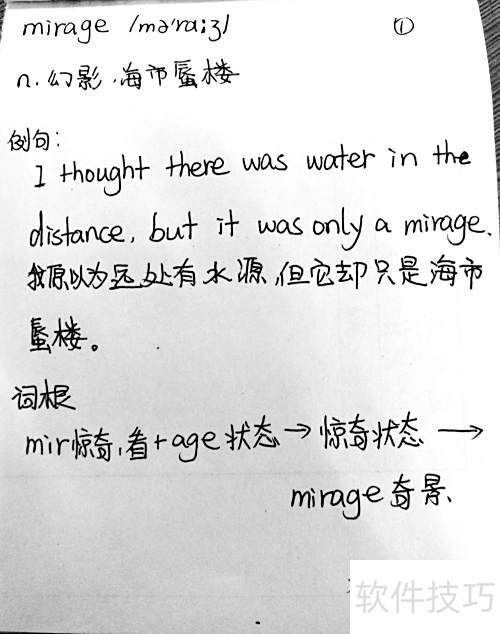 mirage /mə'ra:ʒ/ ①
n. 幻影, 海市蜃楼
例句:
I thought there was water in the
distance, but it was only a mirage.
我原以为远处有水源,但它却只是海市
蜃楼。
词根
mir惊奇,看+age状态→惊奇状态→
mirage奇景
软件技巧